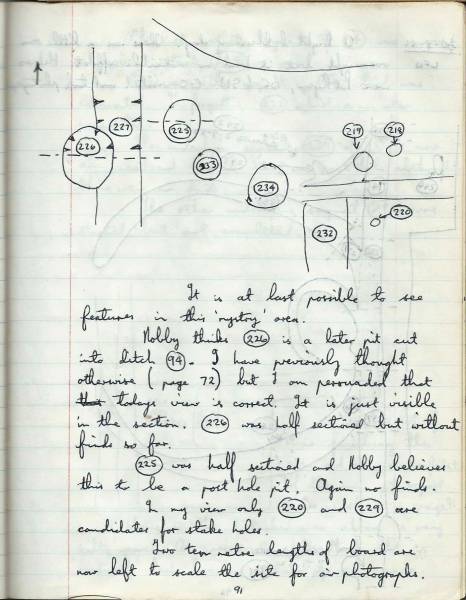 227
225
226
233
234
219
218
220
232
It is at last possible to see
features in this 'mystery' area.
Nobby thinks 226 is a later pit cut
into ditch 94. I have previously thought
otherwise (page 72) but I am persuaded that
todays view is correct. It is just visible
in the section. 226 was half sectioned but without
finds so far.
225 was half sectioned and Nobby believes
this to be a post hole pit. Again no finds.
In my view only 220 and 229 are
candidates for stake holes.
Two ten metre lengths of board are
now left to scale the site for air photographs.
91